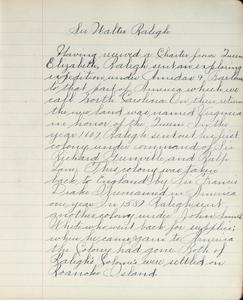 Sir Walter Ralegh
Having received a Charter from Queen
Elizabeth, Ralegh sent an exploring
expedition under Amidas & Barlow
to that part of America which we
call North Carolina. On their return
the new land was named Virginia
in honor of the Queen. In the
year 1607 Ralegh sent out his first
colony under command of Sir
Richard Grenville and Ralph
Lane. This colony was taken
back to England by Sir Francis
Drake. I remained in America
one year. In 1587 Ralegh sent
another colony under John
White who went back for supplies;
when he came again to America
the Colony had gone. Both of
Ralegh's Colonies were settled on
Roanoke Island.